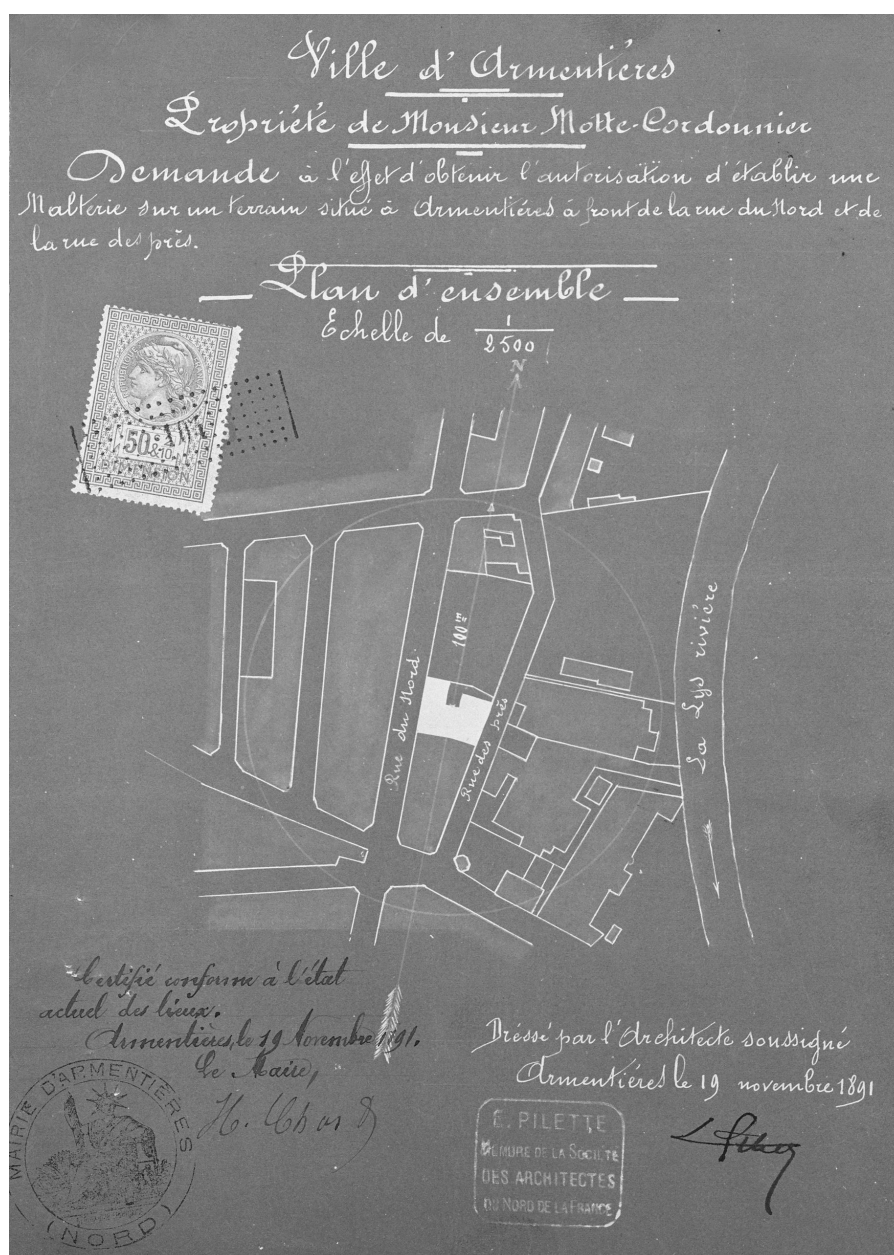 Ville d'Armentiéres
Propriété de Monsieur Motte-Cordonnier
Demande à l'effet d'obtenir l'autorisation d'établir une
Malterie sur un terrain situé à Armentiéres à front de la rue du Nord et de
la rue des près.
Plan d'ensemble
Echelle de 1/2500
N
50c
&10
DIMENSION
100m
Rue du Nord.
Rue des près
La Lys rivière
Certifié conforme à l'état
actuel des lieux.
Armentières, le 19 Novembre 1891.
Le Maire,
MAIRIE D'ARMENTIÈRES
(NORD)
Dréssé par l'Architecte soussigné
Armentiéres le 19 novembre 1891
E. PILETTE
MEMBRE DE LA SOCIÉTÉ
DES ARCHITECTES
DU NORD DE LA FRANCE